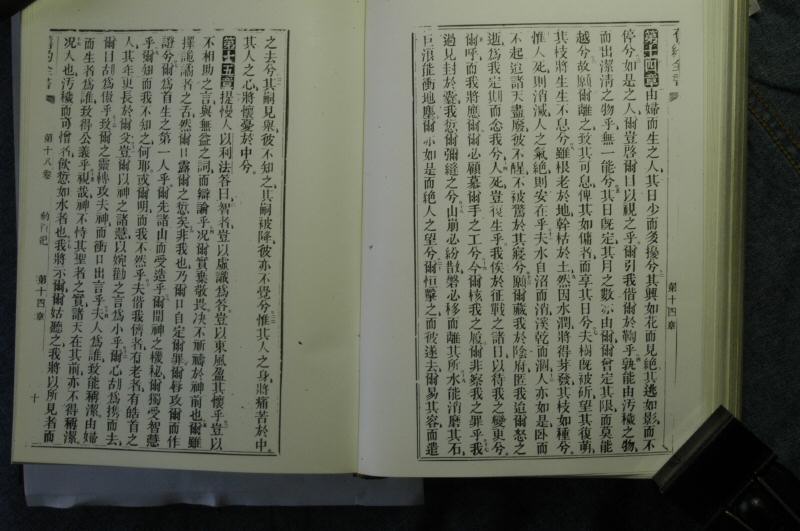 舊約全書
第十四章
第十四章由婦而生之人其日少而多擾兮其興如花而見絶其逃如影而不
停兮如是之人爾豈啓爾目以視之乎爾引我偕爾於鞫乎孰能由汚穢之物
而出潔淸之物乎無一能兮其日既定其月之數亦由爾爾曾定其限而莫能
越兮故願爾離之致其可息俾其如傭者而享其日兮夫樹既被斫望其復萌
其枝將生生不息兮雖根老於地幹枯於土然因水潤將得芽發其枝如種兮
惟人死則消滅人之氣絶則安在乎夫水自沼而消溪乾而涸人亦如是臥而
不起這諸天盡廢彼不醒不被驚於其寢兮願爾藏我於陰府匿我迨爾怒之
逝爲我定期而念我兮人死豈復生乎我俟於征戰之諸日以待我之變更兮
爾呼而我將應爾爾必顧慕爾手之工兮今爾核我之履爾非察我之罪乎我
過見封於囊我愆爾彌縫之兮山崩必紛散磐必移而離其所水能消磨其石
巨浪能衝地塵爾亦如是而絶人之望兮爾恒擊之而彼遂去爾易其容而遣
之去兮其嗣見舉彼不知之其嗣被降彼亦不覺兮惟其人之身將痛苦於中
其人之心將懷憂於中兮
第十五章提幔人以利法答曰智者豈以虛識爲答豈以東風盈其懷乎豈以
不相助之言與無益之詞而辯論乎况爾實棄敬畏决不祈禱於神前也爾雖
擇詭譎者之舌然爾口露爾之愆矣非我也乃爾口自定爾罪爾唇攻爾而作
證兮爾爲首生之第一人乎爾先諸山而受造乎爾聞神之機秘爾獨受智慧
乎爾知而我不知之何耶或爾明而我不然乎夫偕我儕者有老者有皓首之
人其年更長於爾父豈爾以神之諸慰以婉勸之言爲小乎爾心胡爲携而去
爾目胡爲傲乎致爾之靈轉攻夫神而衝口出言乎夫人爲誰致能稱潔由婦
而生者爲誰致得公義乎視哉神不恃其聖者之實諸天在其前亦不得稱潔
况人也汚穢而可憎者飲愆如水者也我將示爾爾姑聽之我將以所見者而
第十八卷
約百記
第十四章
十